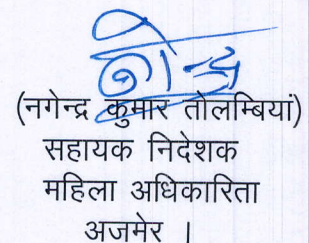 (नगेन्द्र कुमार तोलम्बियां)
सहायक निदेशक
महिला अधिकारिता
अजमेर ।